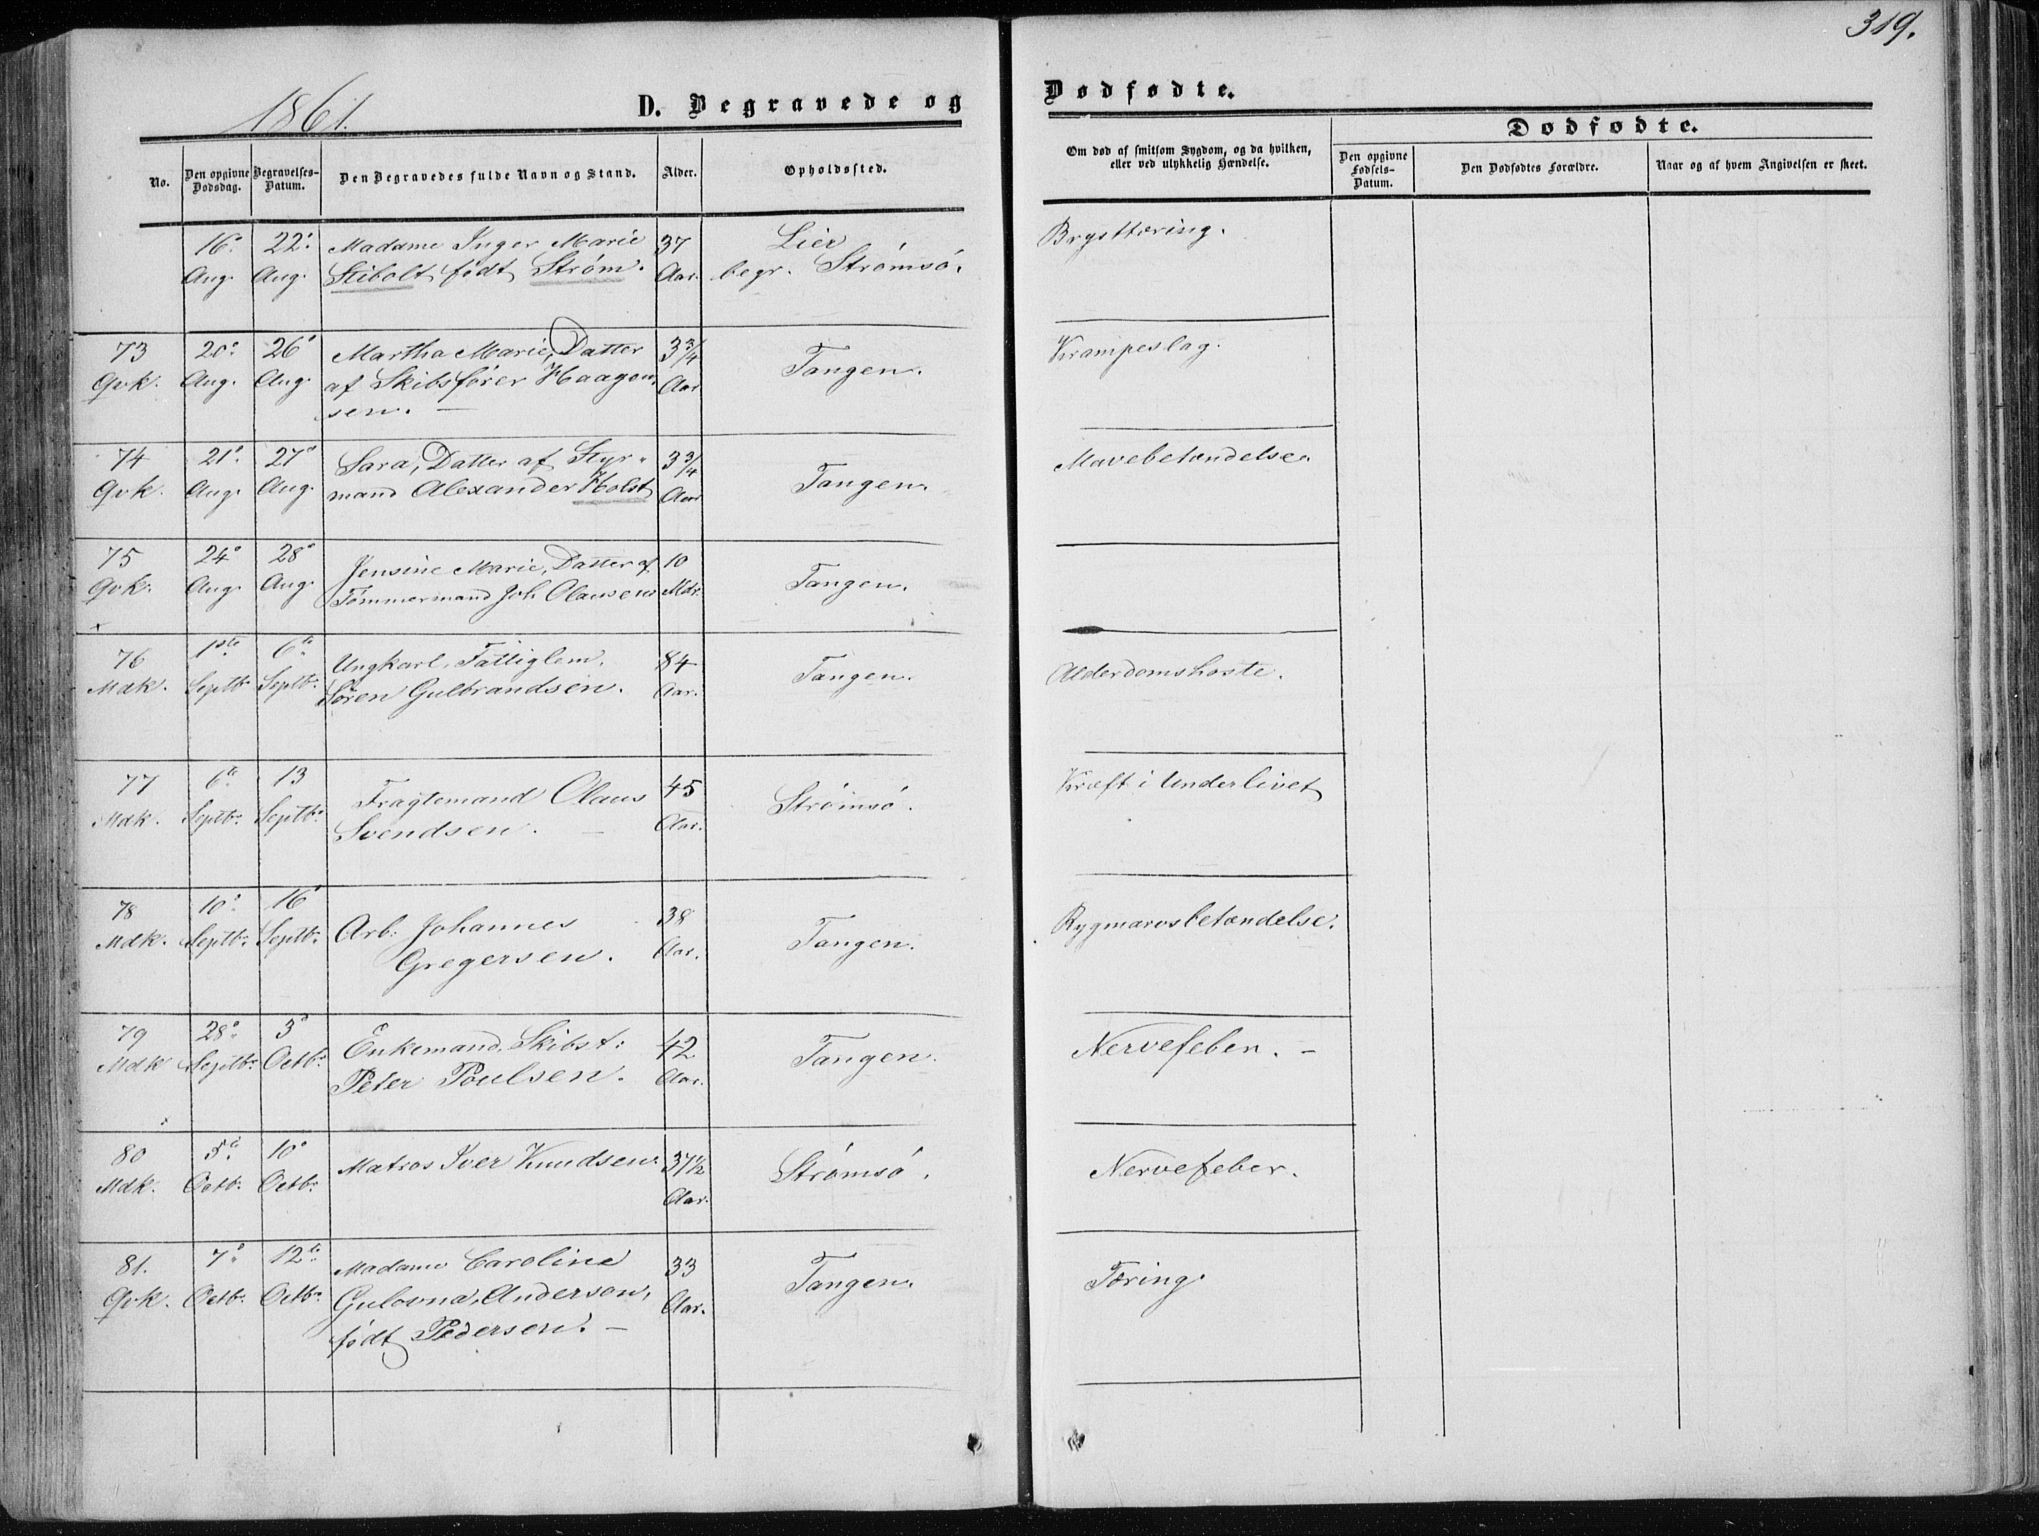 319.
1861.
D. Begravede og
Dødfødte.
Dødfødte.
No.
Den opgivne Dødsdag.
Begravelses-Datum.
Den Begravedes fulde Navn og Stand.
Alder.
Opholdssted.
Om død af smitsom Sygdom, og da hvilken, eller ved ulykkelig Hændelse.
Den opgivne Fødsels-Datum.
Den Dødfødtes Forældre.
Naar og af hvem Angivelsen er skeet.
16. Aug.
22. Aug.
Madame Inger Marie
Stibolt født Strøm.
37 Aar.
Lier
begr. Strømsø.
Brysttæring.
73
Qvk.
20. Aug.
26 Aug.
Martha Marie, Datter
af Skibsfører Haagen
sen. —
3 3/4 Aar
Tangen.
Krampeslag.
74
Qvk.
21. Aug.
27 Aug.
Sara, Datter af Styr-
mand Alexander Holst
3 3/4 Aar
Tangen.
Mavebetændelse.
75
Qvk.
24 Aug.
28 Aug.
Jensine Marie, Datter af
Tømmermand Joh Olausen
10 Mdr.
Tangen.
76
Mdk.
1ste Septbr
6te Septbr.
Ungkarl, Fattiglem,
Søren Gulbrandsen.
84 Aar.
Tangen.
Alderdomshoste.
77
Mdk.
6te Septbr.
13 Septbr.
Fragtemand Olaus
Svendsen. —
45 Aar.
Strømsø.
Kræft i Underlivet
78
Mdk.
10. Septbr.
16 Septbr.
Arb: Johannes
Gregersen.
38 Aar.
Tangen.
Rygmarvsbetændelse.
79
Mdk
28. Septbr.
3 Octbr.
Enkemand, Skibst:
Peter Poulsen.
42 Aar.
Tangen.
Nervefeber. —
80
Mdk.
5te Octbr.
10 Octbr.
Matros Iver Knudsen.
37 1/2 Aar.
Strømsø.
Nervefeber.
81.
Qvk.
7. Octbr.
12te Octbr.
Madame Caroline
Gulovna, Andersen,
født Pedersen. —
33 Aar.
Tangen.
Tæring.